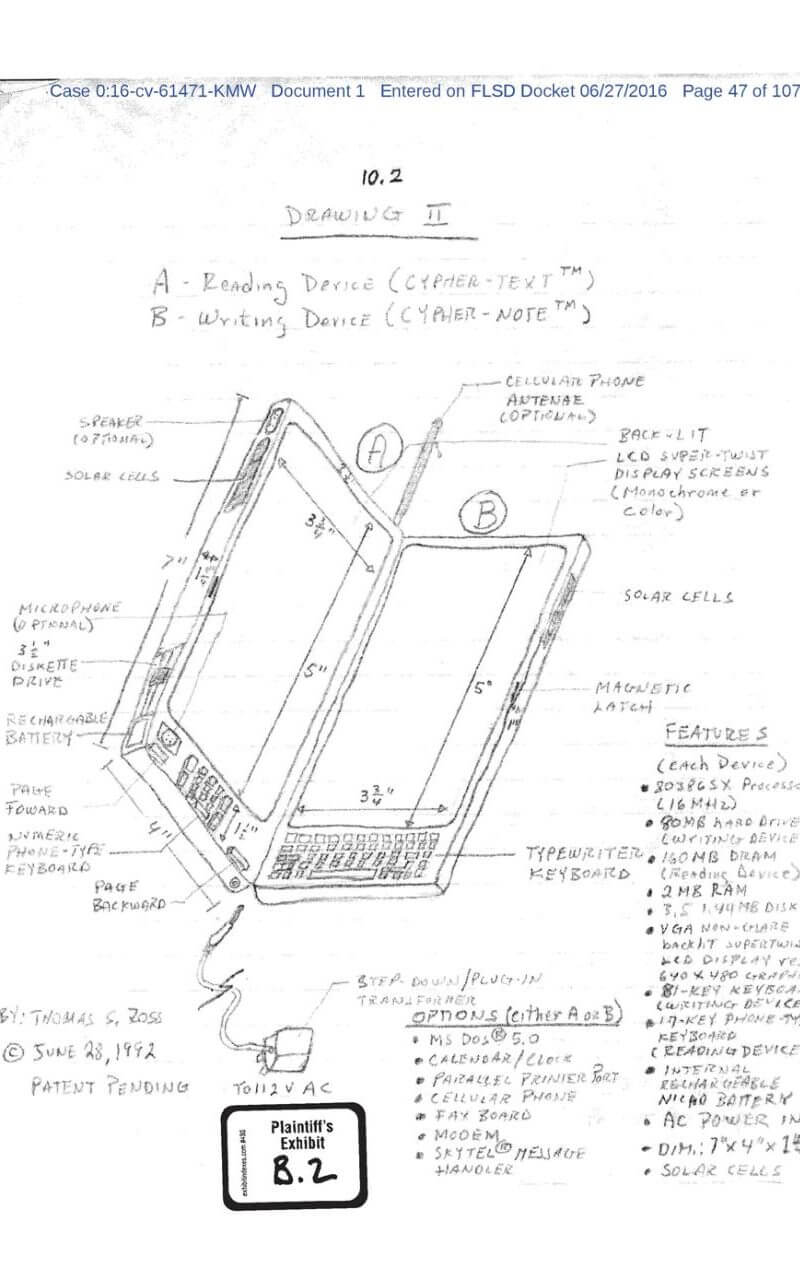 Case 0:16-cv-61471-KMW Document 1 Entered on FLSD Docket 06/27/2016 Page 47 of 107
10.2
DRAWING II
A - Reading Device (CYPHER-TEXT™)
B - Writing Device (CYPHER-NOTE™)
CELLULAR PHONE
ANTENAE
(OPTIONAL)
SPEAKER
(OPTIONAL)
SOLAR CELLS
A
BACK-LIT
LCD SUPER-TWIST
DISPLAY SCREENS
(Monochrome or
Color)
B
3 3/4"
7"
SOLAR CELLS
MICROPHONE
(OPTIONAL)
3 1/2"
DISKETTE
DRIVE
5"
5"
MAGNETIC
LATCH
RECHARGABLE
BATTERY
PAGE
FOWARD
NUMERIC
PHONE-TYPE
KEYBOARD
4"
1 1/2"
3 3/4"
PAGE
BACKWARD
TYPEWRITER
KEYBOARD
FEATURES
(each Device)
• 80386SX Processo
(16 MHz)
• 80MB HARD DRIVE
(WRITING DEVICE
• 160MB DRAM
(Reading Device)
• 2 MB RAM
• 3.5 1.44 MB DISK
• VGA NON-GLARE
backlit SUPERTWIS
LCD DISPLAY res
640 x 480 GRAPHI
• 81-KEY KEYBOA
(WRITING DEVICE
• 17-KEY PHONE-TY
KEYBOARD
(READING DEVICE
• INTERNAL
RECHARGEABLE
NICAD BATTERY
• AC POWER IN
- DIM.: 7"x 4"x 1
• SOLAR CELLS
STEP-DOWN/PLUG-IN
TRANSFORMER
OPTIONS (either A or B)
• MS DOS® 5.0
• CALENDAR/CLOCK
• PARALLEL PRINTER PORT
• CELLULAR PHONE
• FAX BOARD
• MODEM
• SKYTEL® MESSAGE
HANDLER
BY: THOMAS S. ROSS
© JUNE 28, 1992
PATENT PENDING
TO 112 V AC
exhibitindexes.com
Plaintiff's
Exhibit
B.2